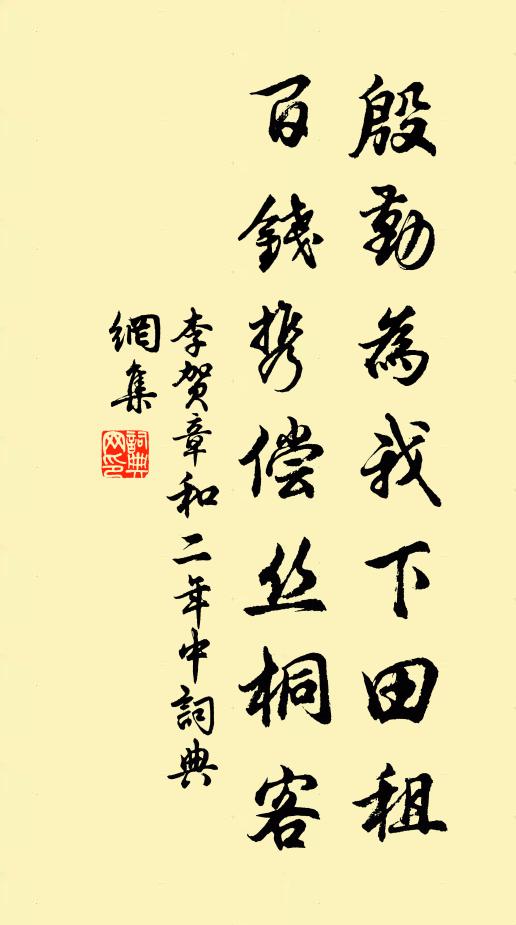 殷勤為我下田租
百錢携偿丝桐客
李賀章和二年中詞典
網集
詞典網印